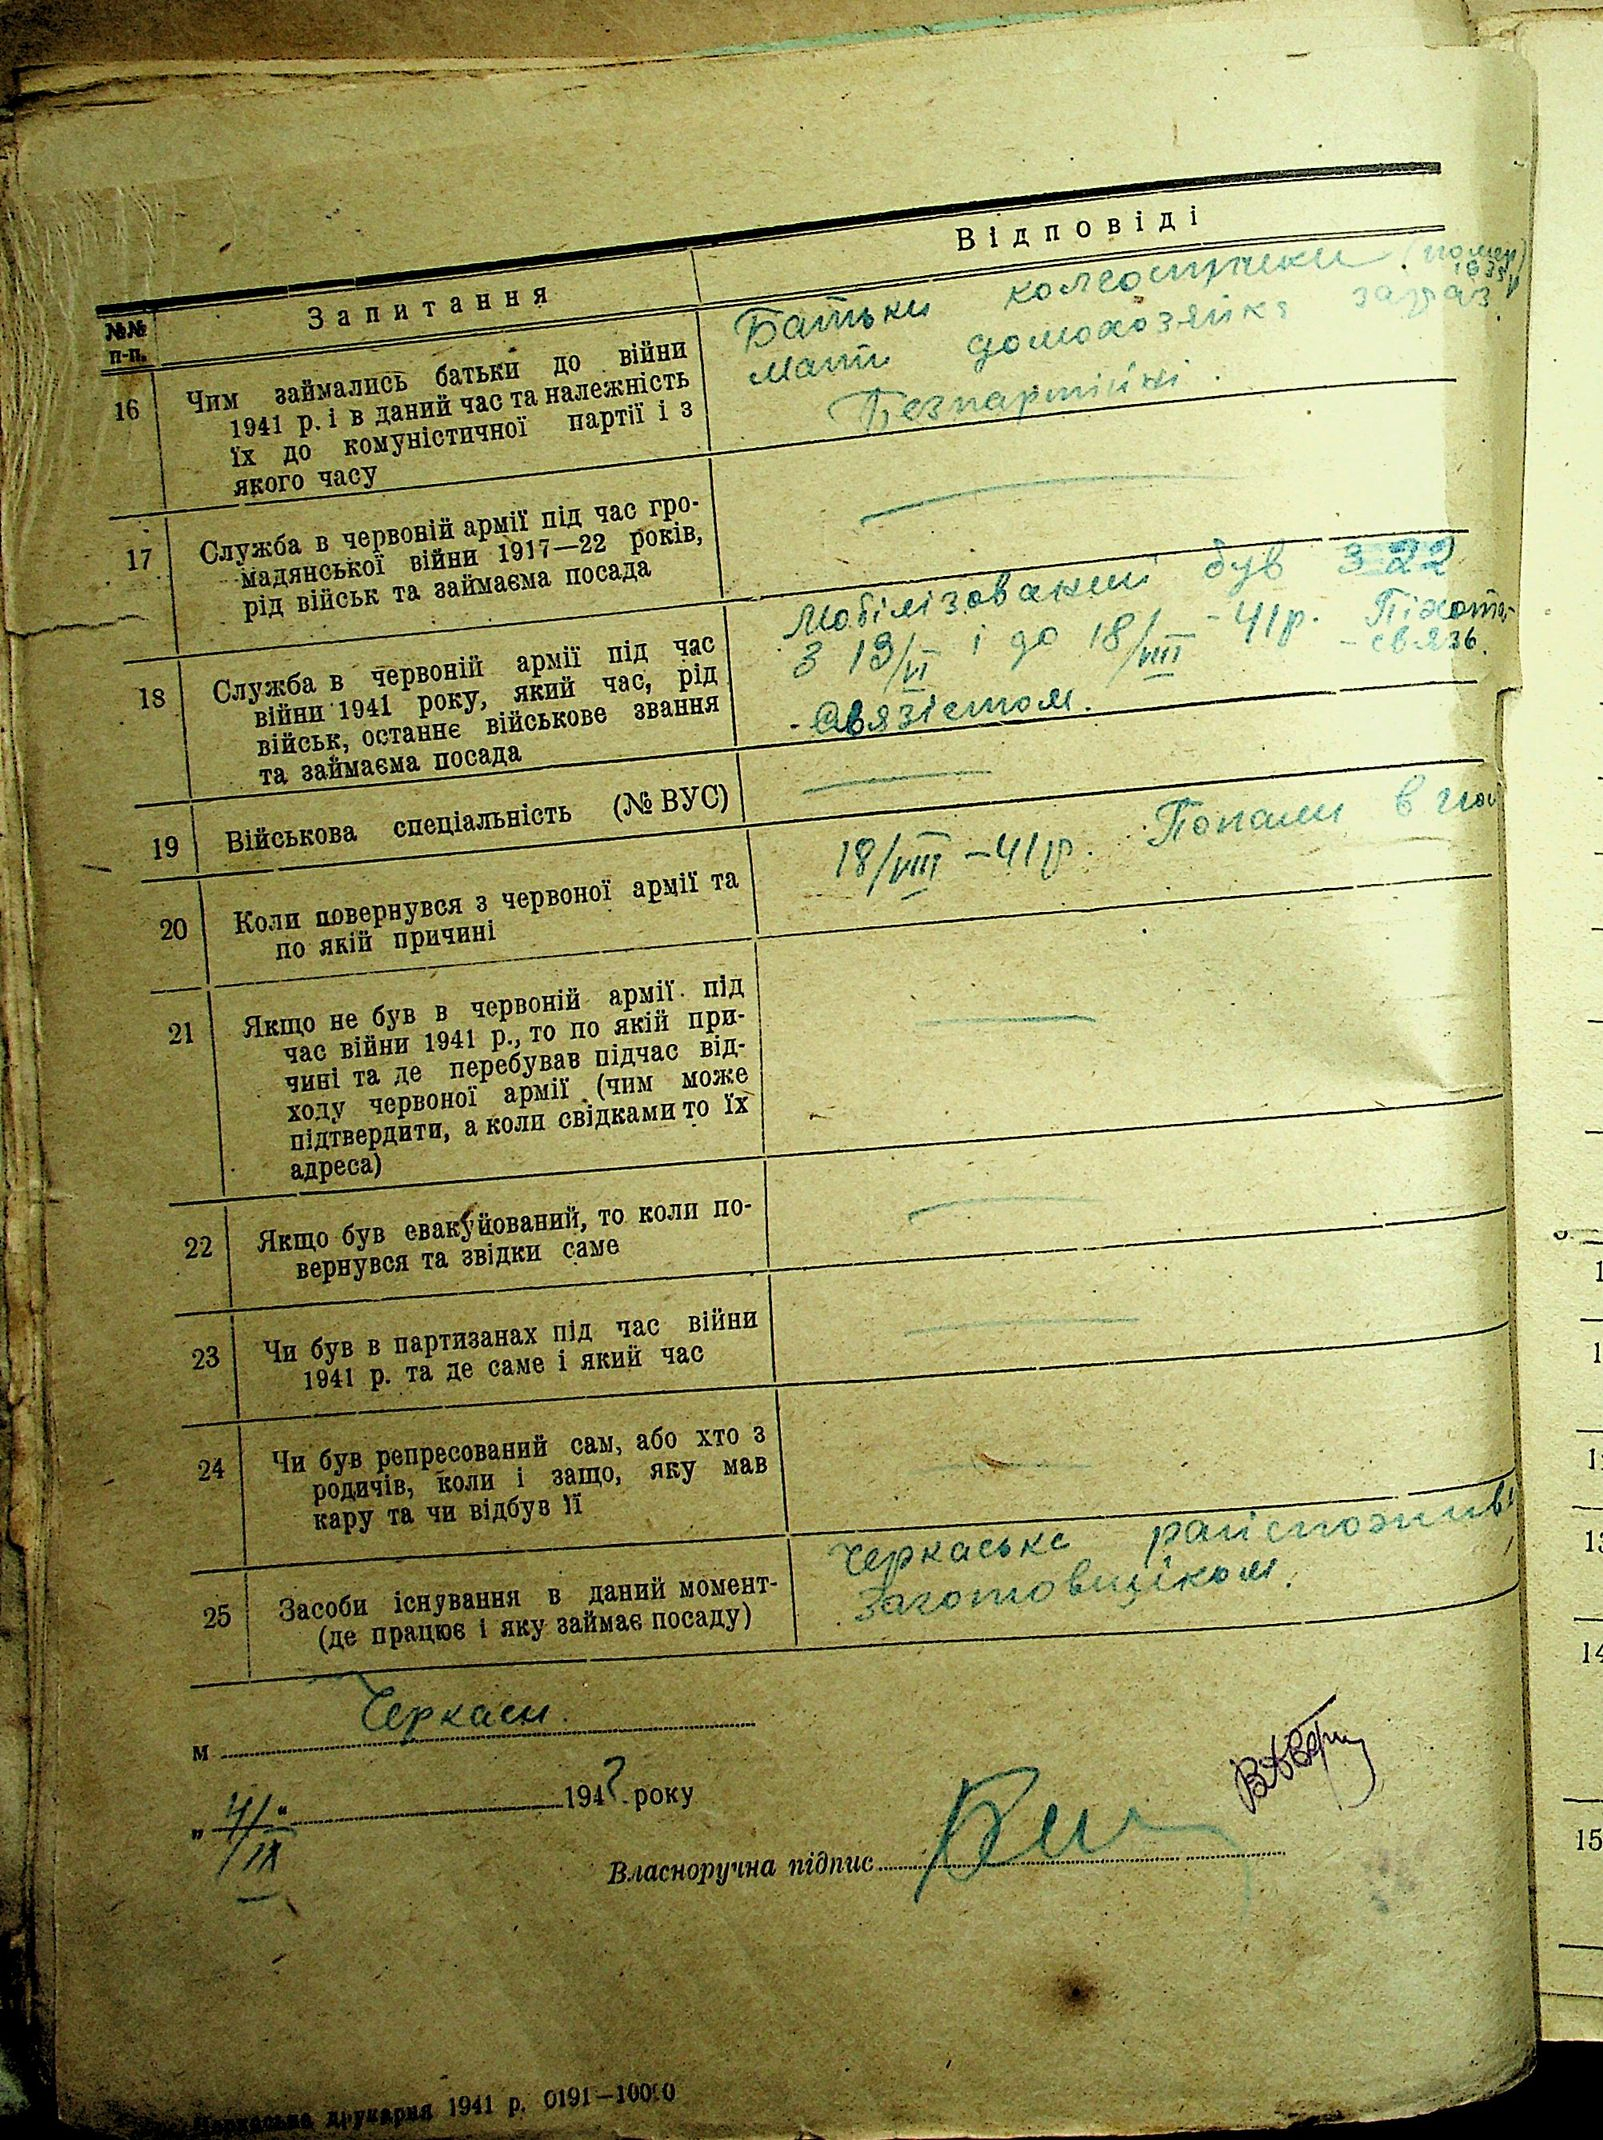 №№ п-п.
Запитання
Відповіді
16
Чим займались батьки до війни
1941 р. і в даний час та належність
їх до комуністичної партії і з
якого часу
Батьки колгоспники (помер
Мати домохозяйка зараз
Безпартійні.
17
Служба в червоній армії під час гро-
мадянської війни 1917—22 років,
рід військ та займаєма посада
18
Служба в червоній армії під час
війни 1941 року, який час, рід
військ, останнє військове звання
та займаєма посада
Мобілізований був з 22
з 19/VI і до 18/VIII - 41 р. Піхота-
- связь.
- Связістом.
19
Військова спеціальність (№ ВУС)
20
Коли повернувся з червоної армії та
по якій причині
18/VIII - 41 р. Попали в
21
Якщо не був в червоній армії під
час війни 1941 р., то по якій при-
чині та де перебував підчас від-
ходу червоної армії (чим може
підтвердити, а коли свідками то їх
адреса)
22
Якщо був евакуйований, то коли по-
вернувся та звідки саме
23
Чи був в партизанах під час війни
1941 р. та де саме і який час
24
Чи був репресований сам, або хто з
родичів, коли і защо, яку мав
кару та чи відбув її
25
Засоби існування в даний момент-
(де працює і яку займає посаду)
Черкаське
Заготовщіком.
м Черкаси.
„ 4/IX “ 194 року
Власноручна підпис
друкарня 1941 р. 0191—10000
15